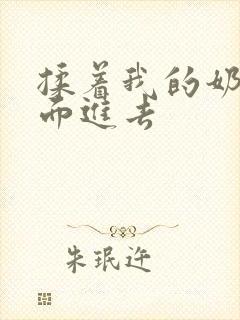 揉着我的奶
而进去
朱珉迕